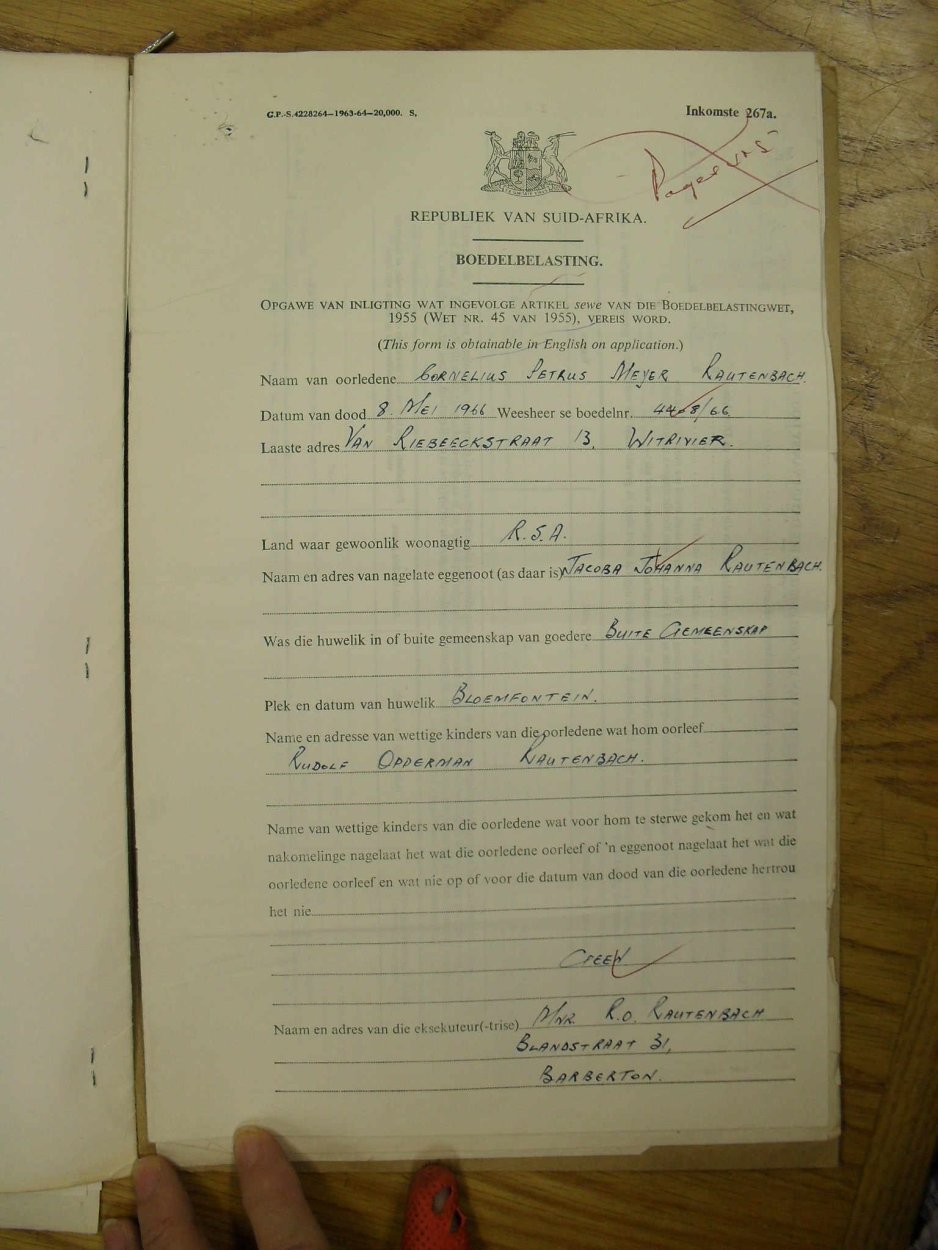 G.P.-S.4228264—1963-64—20,000. S.
Inkomste 267a.
REPUBLIEK VAN SUID-AFRIKA.
BOEDELBELASTING.
OPGAWE VAN INLIGTING WAT INGEVOLGE ARTIKEL sewe VAN DIE BOEDELBELASTINGWET,
1955 (WET NR. 45 VAN 1955), VEREIS WORD.
(This form is obtainable in English on application.)
Naam van oorledene CORNELIUS PETRUS MEYER RAUTENBACH.
Datum van dood 8 MEI 1966 Weesheer se boedelnr. 4408/66
Laaste adres VAN RIEBEECKSTRAAT 13, WITRIVIER.
Land waar gewoonlik woonagtig R.S.A.
Naam en adres van nagelate eggenoot (as daar is) JACOBA JOHANNA RAUTENBACH.
Was die huwelik in of buite gemeenskap van goedere BUITE GEMEENSKAP
Plek en datum van huwelik BLOEMFONTEIN.
Name en adresse van wettige kinders van die oorledene wat hom oorleef
RUDOLF OPDERMAN RAUTENBACH.
Name van wettige kinders van die oorledene wat voor hom te sterwe gekom het en wat
nakomelinge nagelaat het wat die oorledene oorleef of 'n eggenoot nagelaat het wat die
oorledene oorleef en wat nie op of voor die datum van dood van die oorledene hertrou
het nie
GEEN
Naam en adres van die eksekuteur(-trise) MNR. R.O. RAUTENBACH
BLANDSTRAAT 31,
BARBERTON.